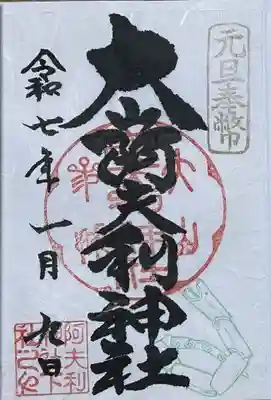 元旦奉幣
大山阿夫利神社
令和七年 一月 九日
阿夫利